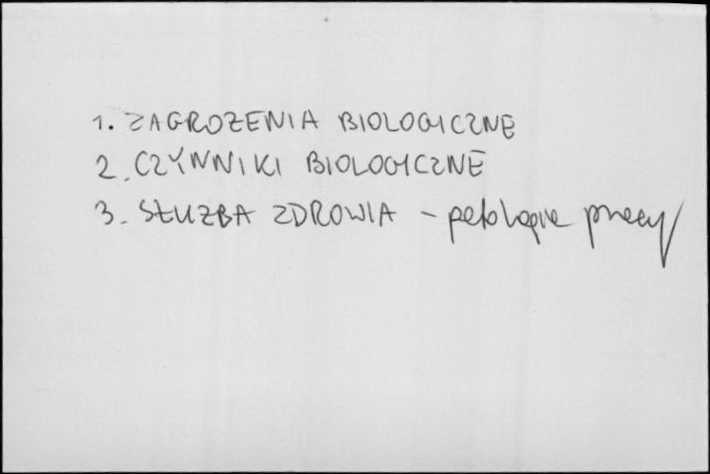 1. ZAGROŻENIA BIOLOGICZNE
2. CZYNNIKI BIOLOGICZNE
3. SŁUŻBA ZDROWIA - patologie pracy